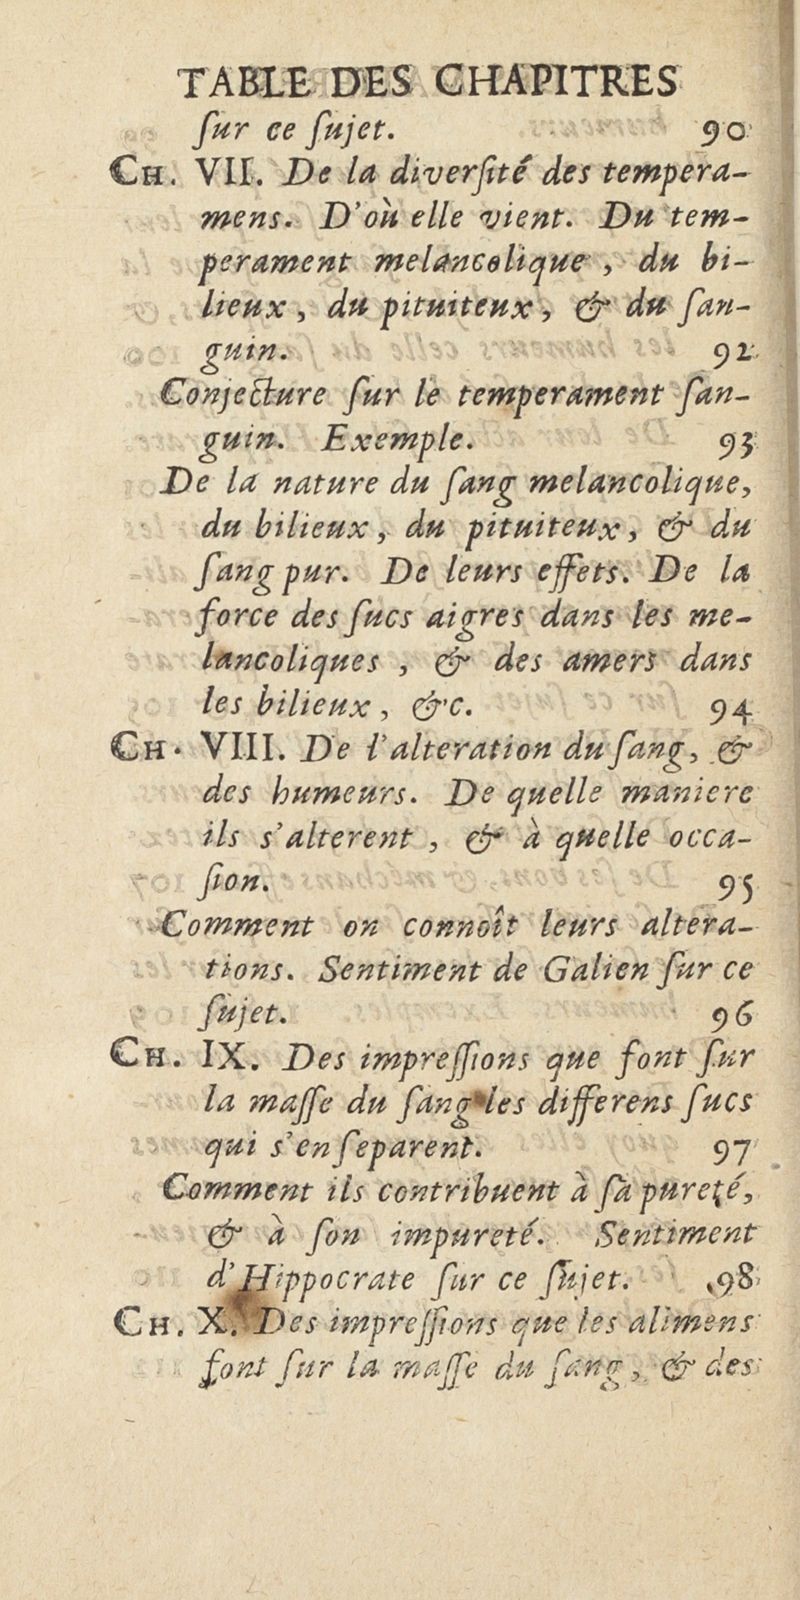 TABLE DES CHAPITRES
ſur ce ſujet. 90
CH. VII. De la diverſité des tempera-
mens. D'où elle vient. Du tem-
perament melancolique, du bi-
lieux, du pituiteux, & du ſan-
guin. 92
Conjecture ſur le temperament ſan-
guin. Exemple. 93
De la nature du ſang melancolique,
du bilieux, du pituiteux, & du
ſang pur. De leurs effets. De la
force des ſucs aigres dans les me-
lancoliques, & des amers dans
les bilieux, &c. 94
CH. VIII. De l'alteration du ſang, &
des humeurs. De quelle maniere
ils s'alterent, & à quelle occa-
ſion. 95
Comment on connoît leurs altera-
tions. Sentiment de Galien ſur ce
ſujet. 96
CH. IX. Des impreſſions que font ſur
la maſſe du ſang les differens ſucs
qui s'en ſeparent. 97
Comment ils contribuent à ſa pureté,
& à ſon impureté. Sentiment
d'Hippocrate ſur ce ſujet. 98
CH. X. Des impreſſions que les alimens
font ſur la maſſe du ſang, & des